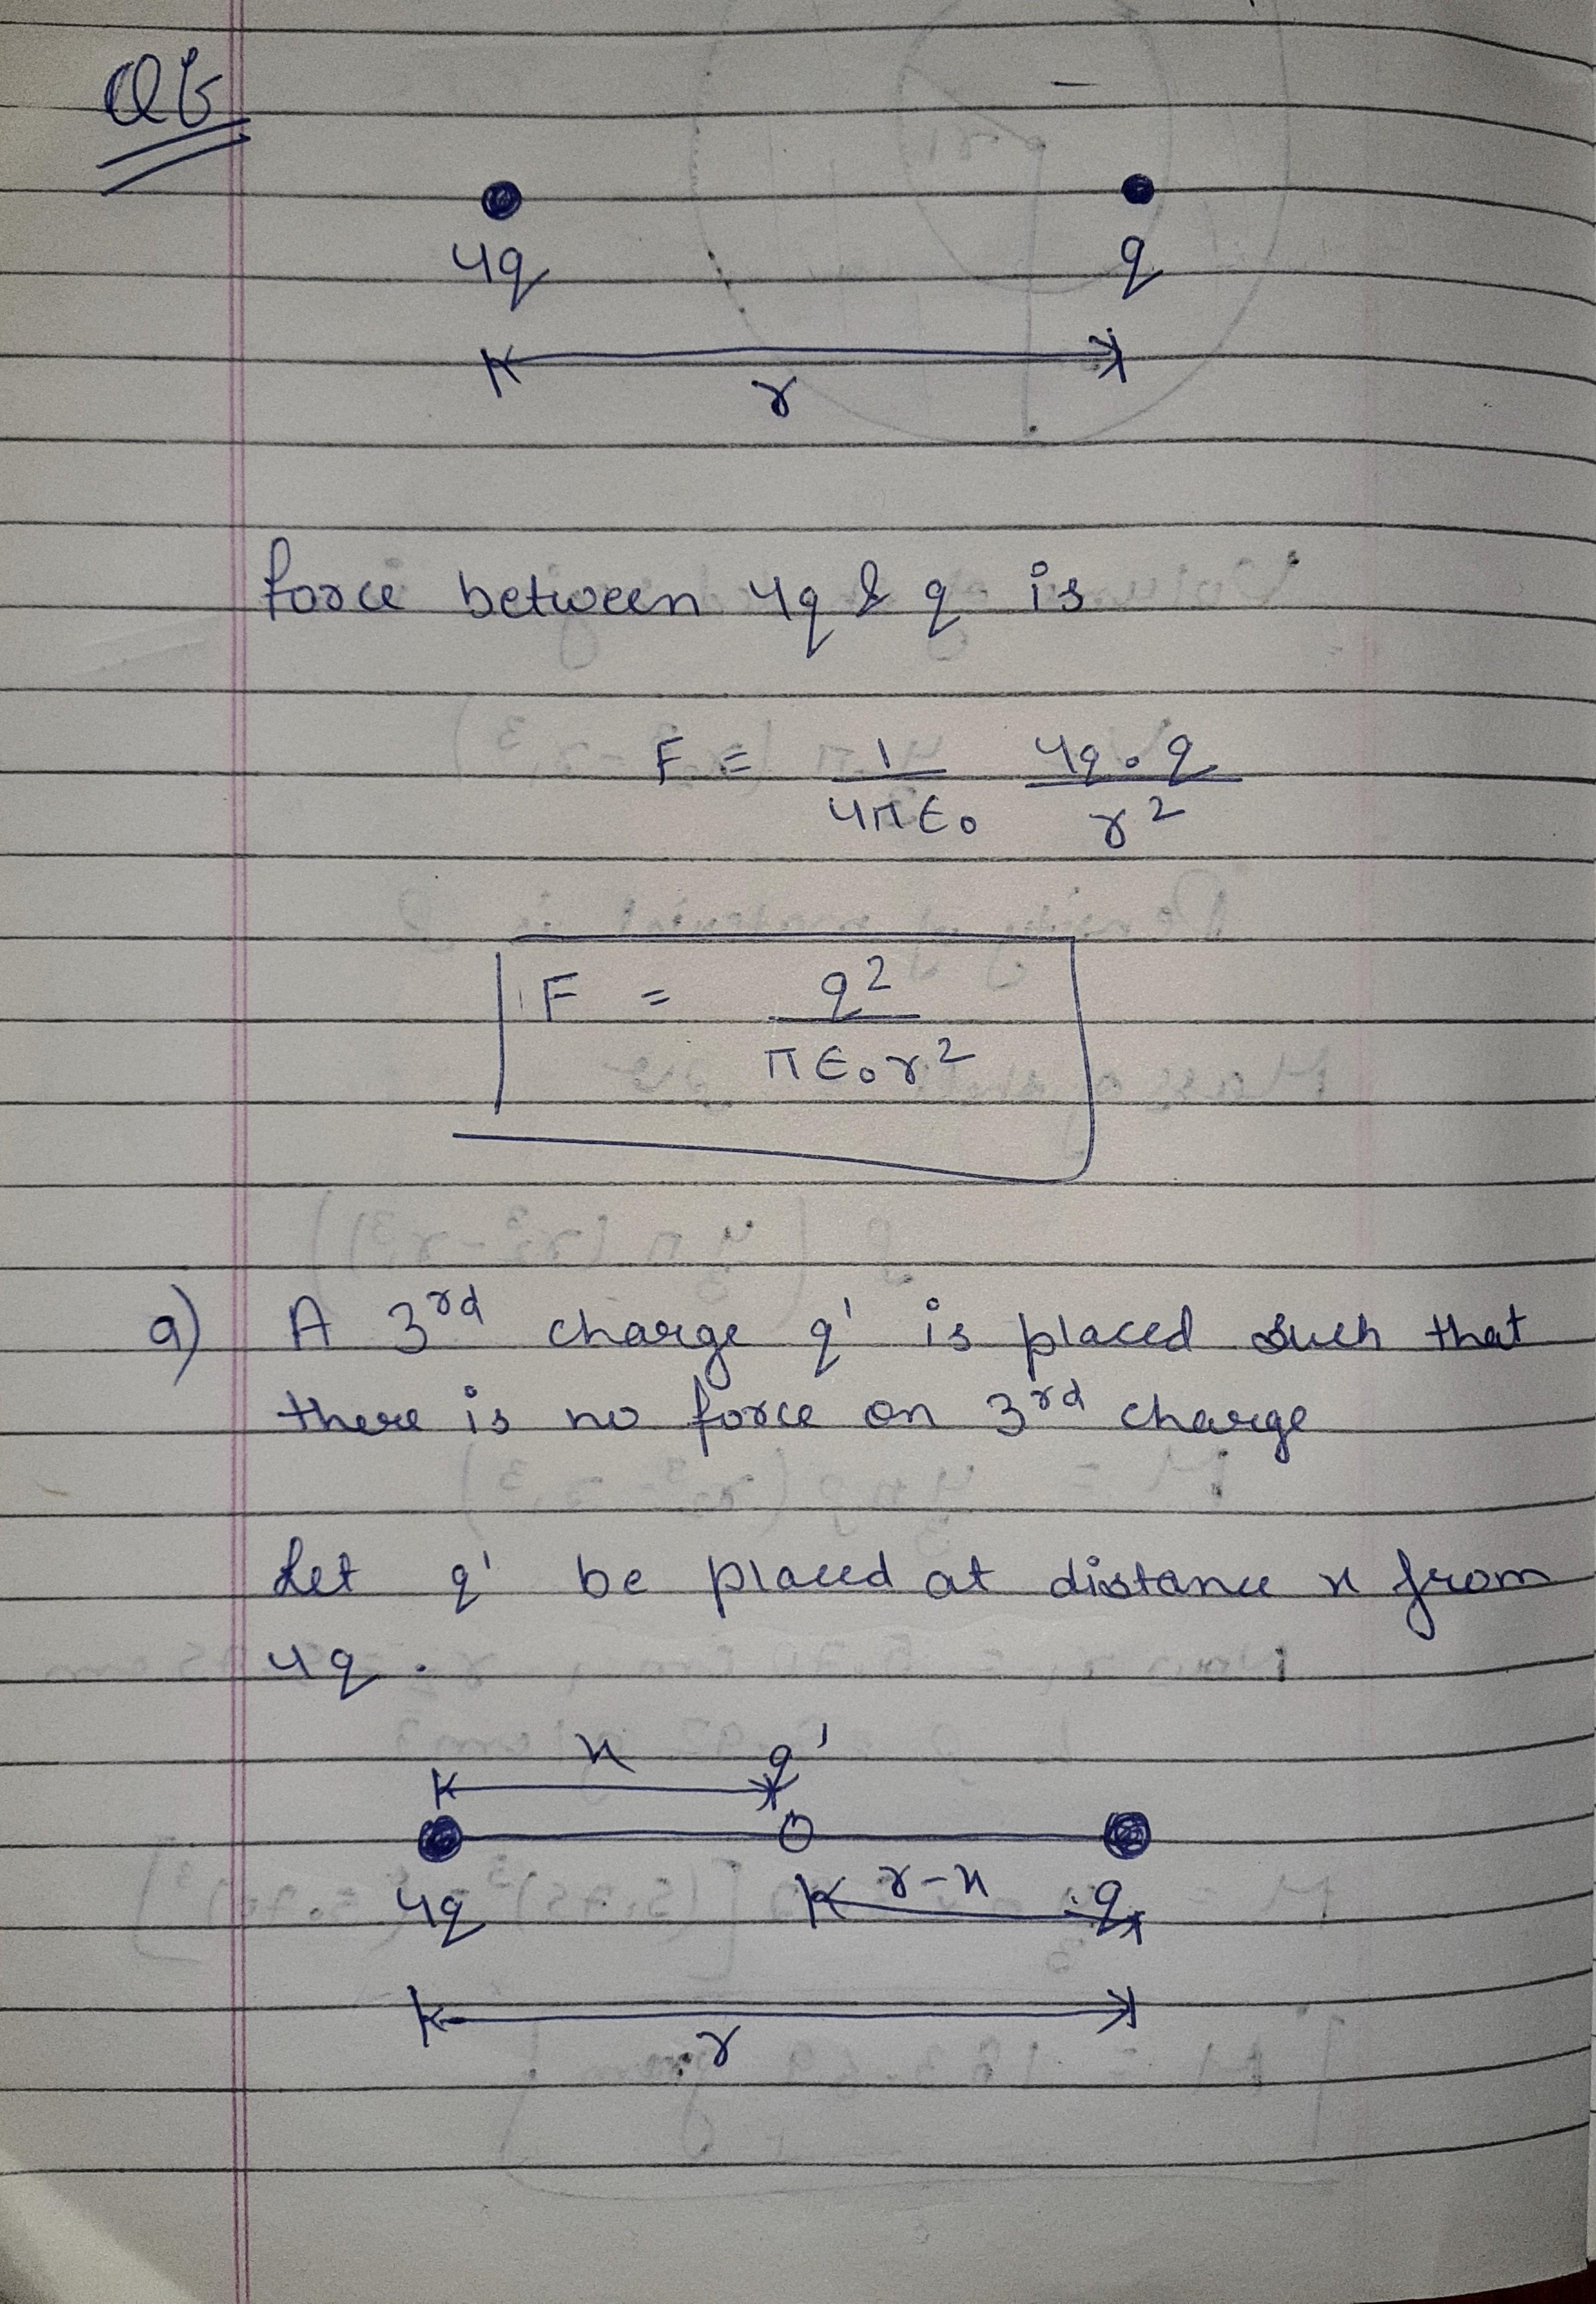 Q6
4q q
r
force between 4q & q is
F = 1/4πϵ₀ 4q.q/r²
F = q²/πϵ₀r²
a) A 3rd charge q' is placed such that
there is no force on 3rd charge
Let q' be placed at distance x from
4q.
x q'
4q r-x q
r